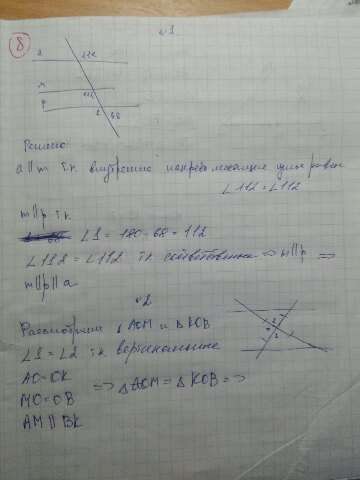 8
№1
a
112
m
112
p
1
68
Решение
a || m т.к. внутренние накрест лежащие углы равны
∠112 = ∠112
m || p т.к.
∠1 = 180 - 68 = 112
∠112 = ∠112 т.к. соответственные => m || p =>
m || p || a
№2
Рассмотрим △AOM и △KOB
∠1 = ∠2 т.к. вертикальные
AO = OK
MO = OB => △AOM = △KOB =>
AM || BK